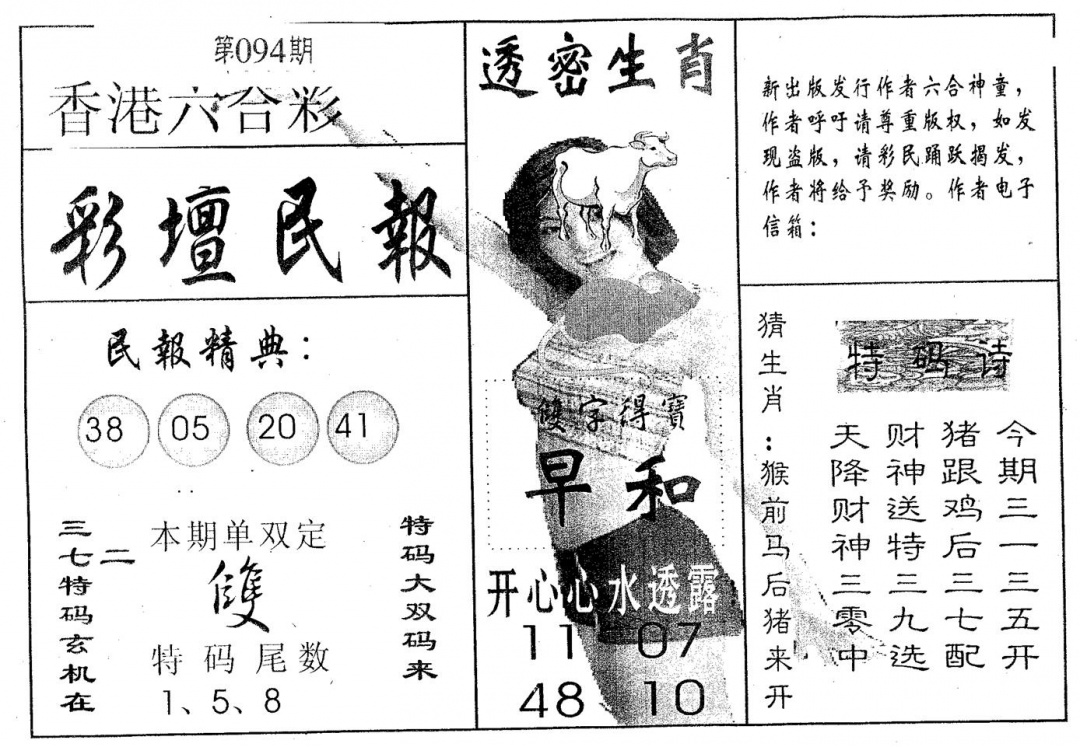 第094期
香港六合彩
彩壇民報
民報精典：
38 05 20 41
三七特码玄机在
二
本期单双定
雙
特码尾数
1、5、8
特码大双码来
透密生肖
雙字得寶
早和
开心心水透露
11 07
48 10
新出版发行作者六合神童，
作者呼吁请尊重版权，如发
现盗版，请彩民踊跃揭发，
作者将给予奖励。作者电子
信箱：
猜生肖：猴前马后猪来开
特码诗
今期三一三五开
猪跟鸡后三七配
财神送特三九选
天降财神三零中